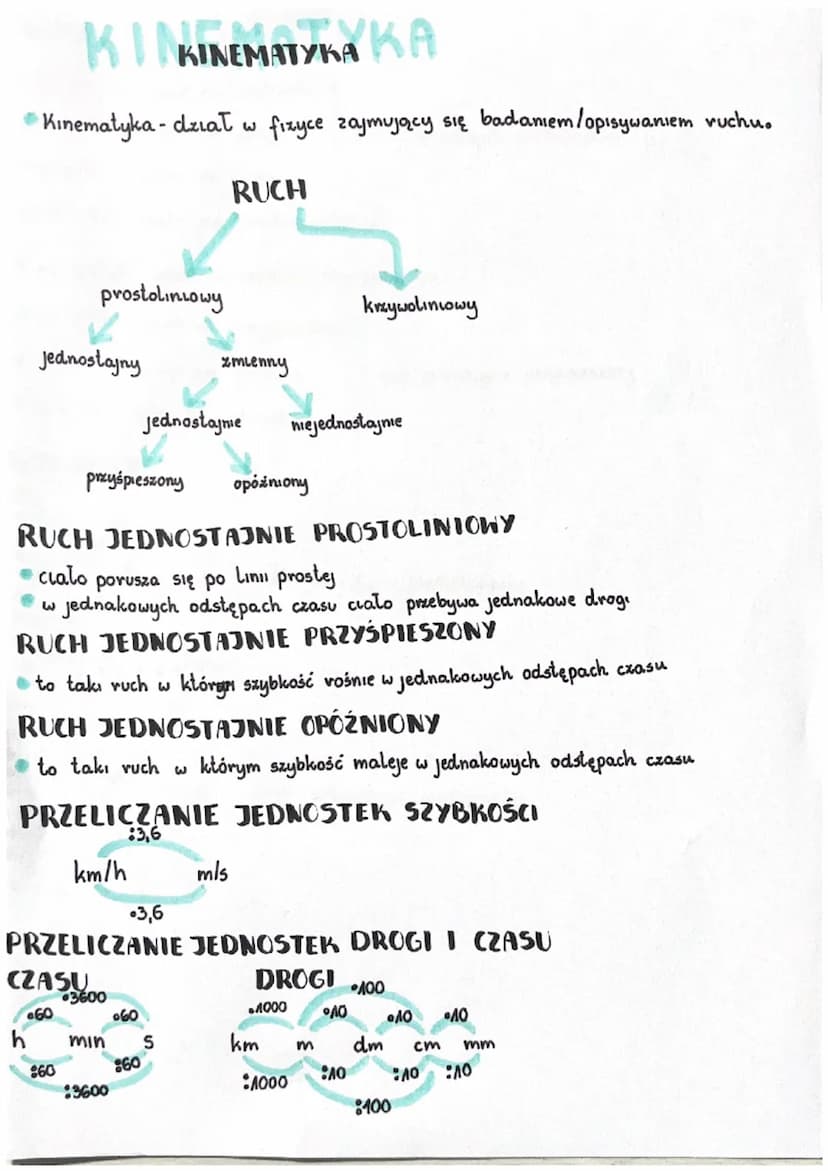 KINEMATYKA
KINEMATYKA
• Kinematyka - dział w fizyce zajmujący się badaniem/opisywaniem ruchu.
RUCH
prostoliniowy
krzywoliniowy
jednostajny
zmienny
jednostajnie
niejednostajnie
przyśpieszony
opóźniony
RUCH JEDNOSTAJNIE PROSTOLINIOWY
• ciało porusza się po linii prostej
• w jednakowych odstępach czasu ciało przebywa jednakowe drogi
RUCH JEDNOSTAJNIE PRZYŚPIESZONY
• to taki ruch w którym szybkość rośnie w jednakowych odstępach czasu
RUCH JEDNOSTAJNIE OPÓŹNIONY
• to taki ruch w którym szybkość maleje w jednakowych odstępach czasu
PRZELICZANIE JEDNOSTEK SZYBKOŚCI
:3,6
km/h m/s
•3,6
PRZELICZANIE JEDNOSTEK DROGI I CZASU
CZASU
•3600
•60 •60
h min s
:60 :60
:3600
DROGI
•100
•1000 •10 •10 •10
km m dm cm mm
:1000 :10 :10 :10
:100